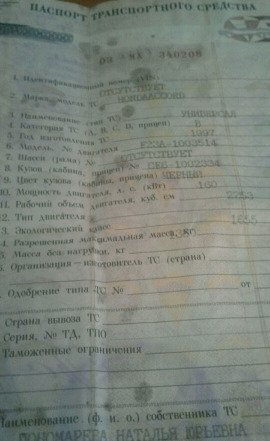 ПАСПОРТ ТРАНСПОРТНОГО СРЕДСТВА
340208
1. Идентификационный номер (VIN) ОТСУТСТВУЕТ
2. Марка, модель ТС HONDA ACCORD
3. Наименование (тип ТС) УНИВЕРСАЛ
4. Категория ТС (А, В, С, D, прицеп) B
5. Год изготовления ТС 1997
6. Модель, № двигателя F23A-1003514
7. Шасси (рама) № ОТСУТСТВУЕТ
8. Кузов (кабина, прицеп) № CF6-1002334
9. Цвет кузова (кабины, прицепа) ЧЕРНЫЙ
10. Мощность двигателя, л. с. (кВт) 160
11. Рабочий объем двигателя, куб. см 2253
12. Тип двигателя
13. Экологический класс
Разрешенная максимальная масса, кг
Масса без нагрузки, кг
Организация—изготовитель ТС (страна)
Одобрение типа ТС № от
Страна вывоза ТС
Серия, № ТД, ТПО
Таможенные ограничения
Наименование (ф. и. о.) собственника ТС
ПОНОМАРЕВА НАТАЛЬЯ ЮРЬЕВНА